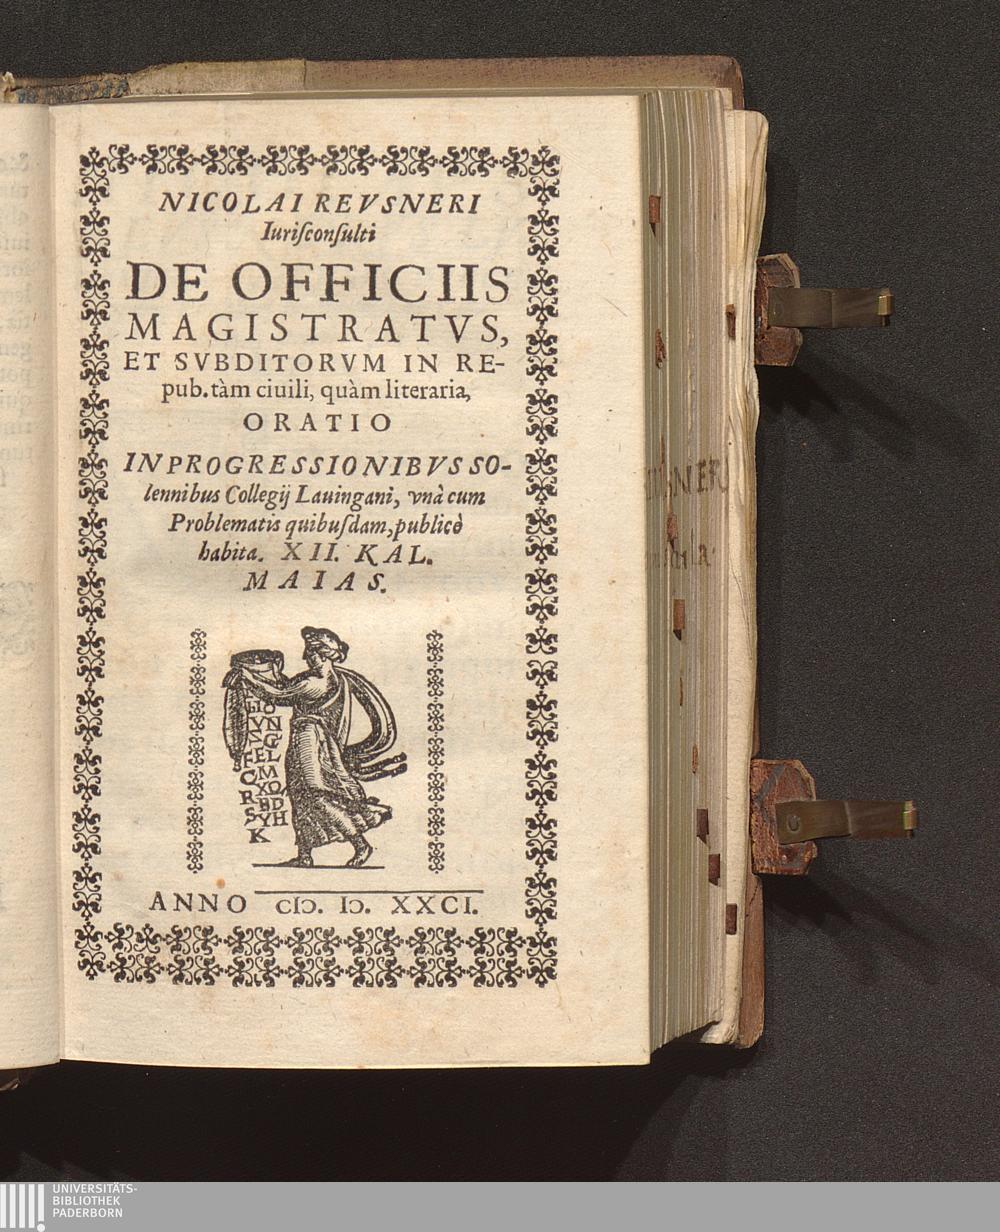 NICOLAI REVSNERI
Iuriſconſulti
DE OFFICIIS
MAGISTRATVS,
ET SVBDITORVM IN RE-
pub. tàm ciuili, quàm literaria,
ORATIO
IN PROGRESSIONIBVS SO-
lennibus Collegij Lauingani, vnà cum
Problematis quibuſdam, publicè
habita. XII. KAL.
MAIAS.
ANNO CIↃ. IↃ. XXCI.
UNIVERSITÄTS-
BIBLIOTHEK
PADERBORN